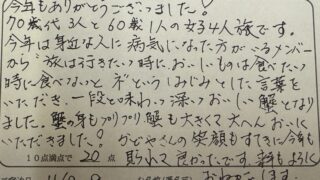 今年もありがとうございました！
70歳代3人と60歳1人の女子4人旅です。
今年は身近な人に病気になった方がいるメンバー
から"旅は行きたい時においしいものは食べたい
時に食べないとネ"というしみじみとした言葉を
いただき、一段と味わって深いおいしい蟹となり
ました。蟹の身もプリプリ甲も大きくて大へんおいしく
いただきました！かどやさんの笑顔もすてきに今年も
10点満点で20点
来れて良かったです。来年もよろしく
おねがいします